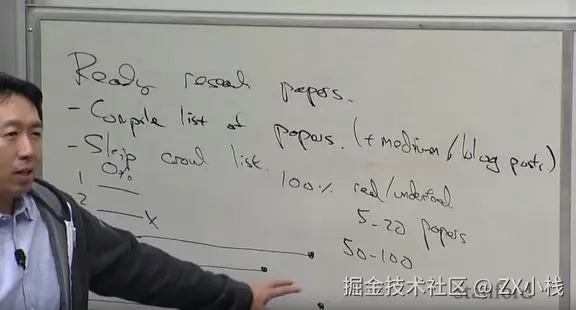 Ready reseach papers.
- Compile list of papers. (+ medium/blog posts.)
- Skip around list.
0% 100% read/understand.
1
2 X
5-20 papers
50-100
Stanford
掘金技术社区 @ ZX小栈